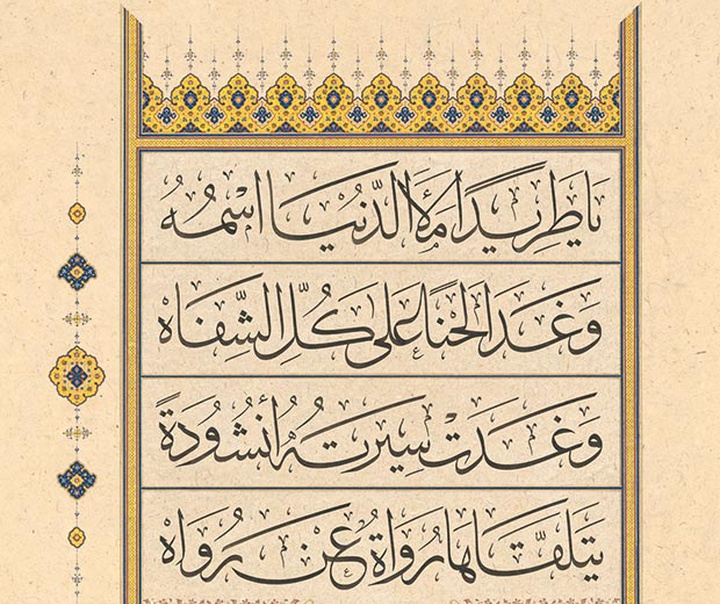 يَا طَرِيدًا مَلَأَ الدُّنْيَا اسْمُهُ
وَغَدَا لَحْنًا عَلَى كُلِّ الشِّفَاهْ
وَغَدَتْ سِيرَتُهُ أُنْشُودَةً
يَتَلَقَّاهَا رُوَاةٌ عَنْ رُوَاهْ